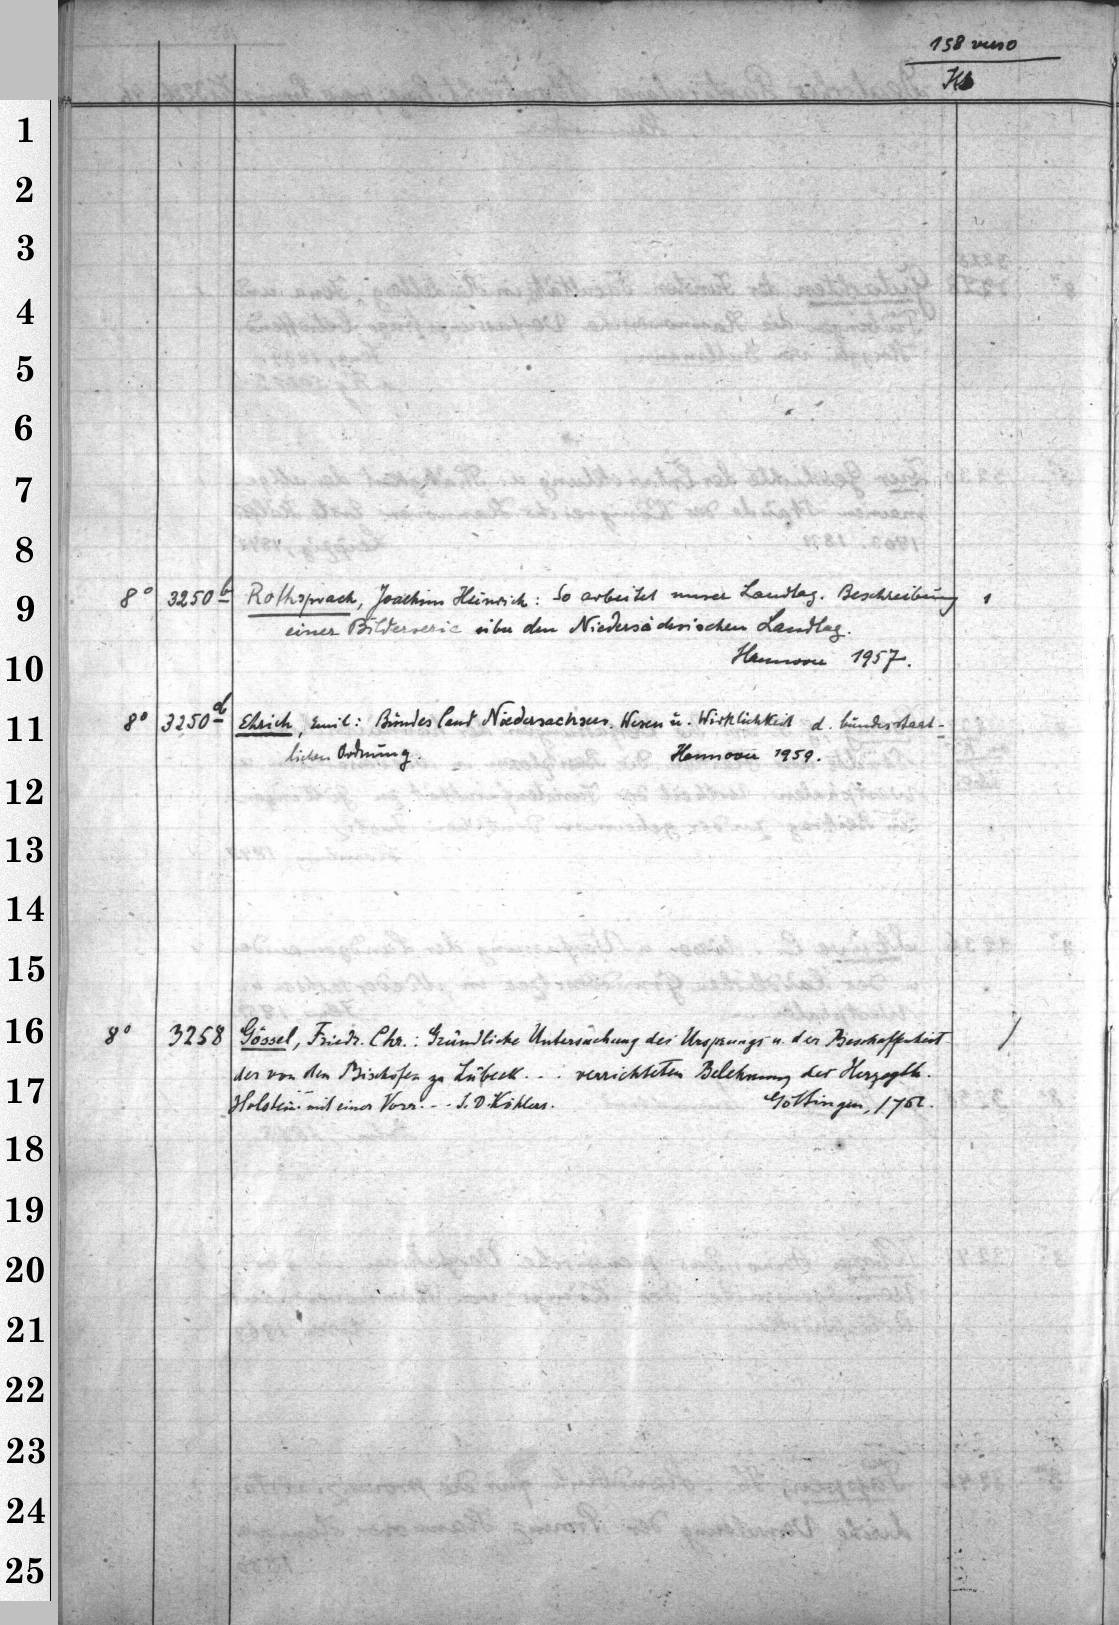 158 verso
Kb
1
2
3
4
5
6
7
8
9
8° 3250 b Rothsprach, Joachim Heinrich: So arbeitet unser Landtag. Beschreibung 1
einer Bilderserie über den Niedersächsischen Landtag.
10
Hannover 1957.
11
8° 3250 d Ehrich, Emil: Bundesland Niedersachsen. Wesen u. Wirklichkeit d. bundesstaat-
lichen Ordnung. Hannover 1959.
12
13
14
15
16
8° 3258 Gössel, Friedr. Chr.: Gründliche Untersuchung des Ursprungs u. der Beschaffenheit /
der von den Bischöfen zu Lübeck . . . verrichteten Belehnung des Herzogth.
17
Holstein. mit einer Vorr. - - J. D. Köhlers. Göttingen,
18
19
20
21
22
23
24
25